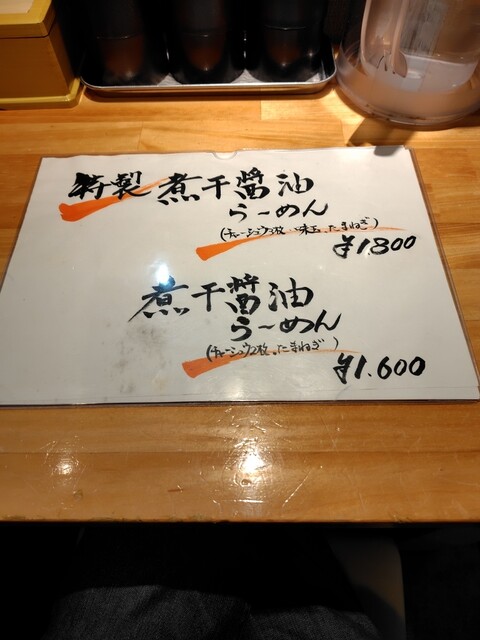 特製 煮干醤油
らーめん
(チャーシュウ3枚、味玉、たまねぎ)
¥1800
煮干醤油
らーめん
(チャーシュウ2枚、たまねぎ)
¥1.600